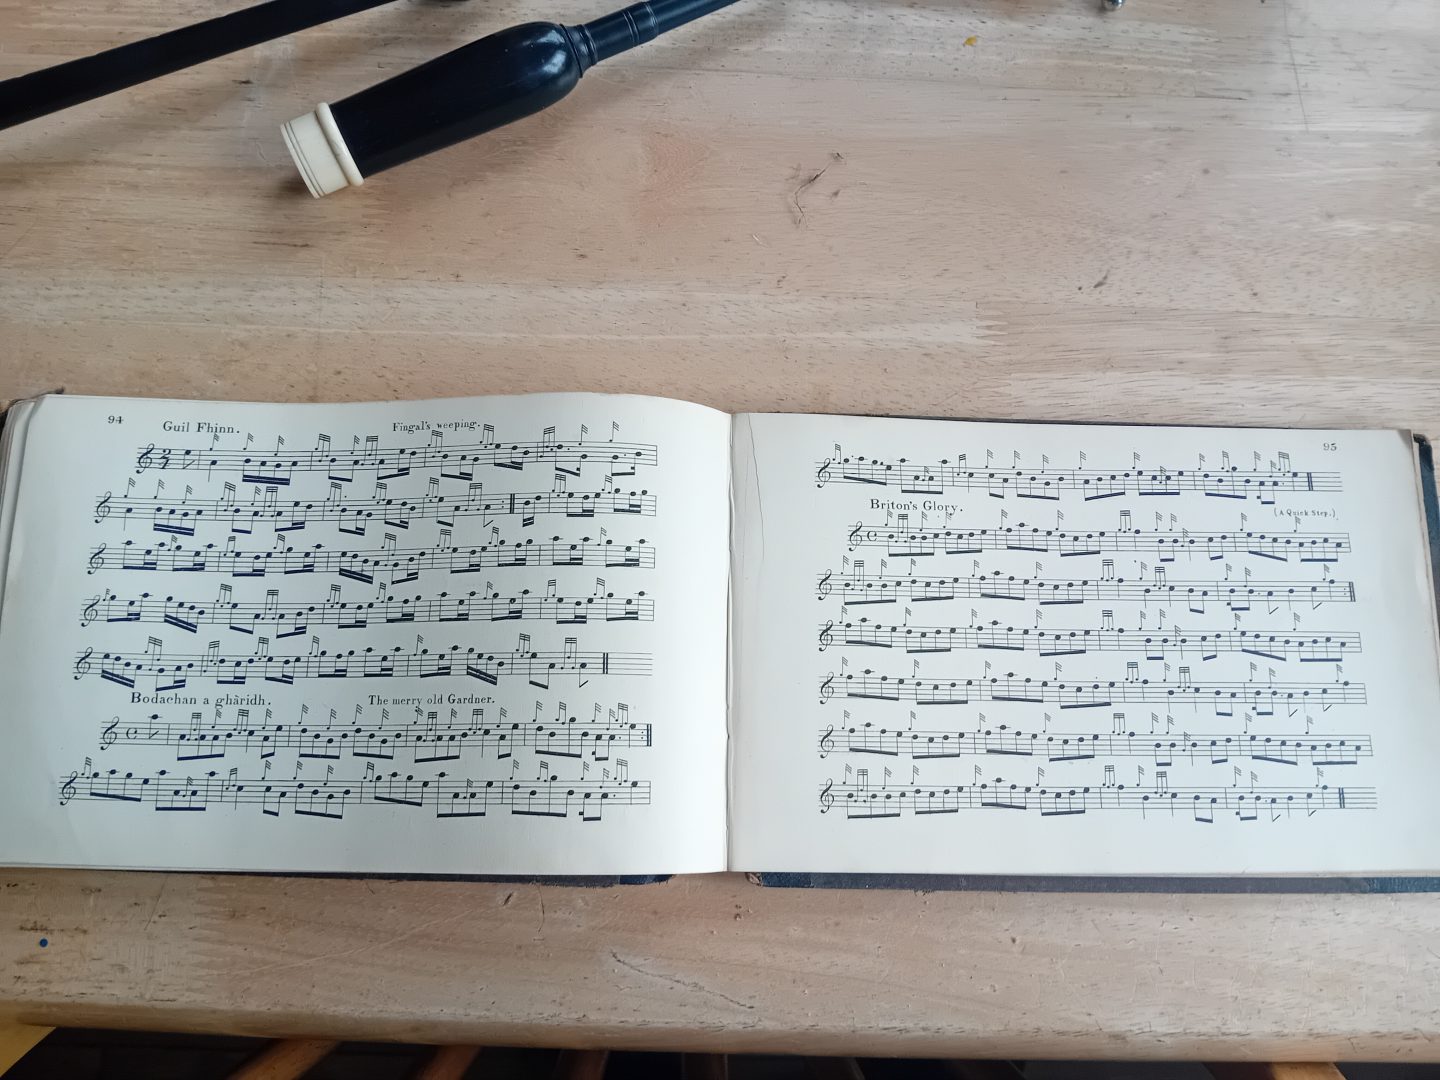 94
Guil Fhinn. Fingal's weeping.
Bodachan a ghàridh. The merry old Gardner.
95
Briton's Glory. (A Quick Step.)